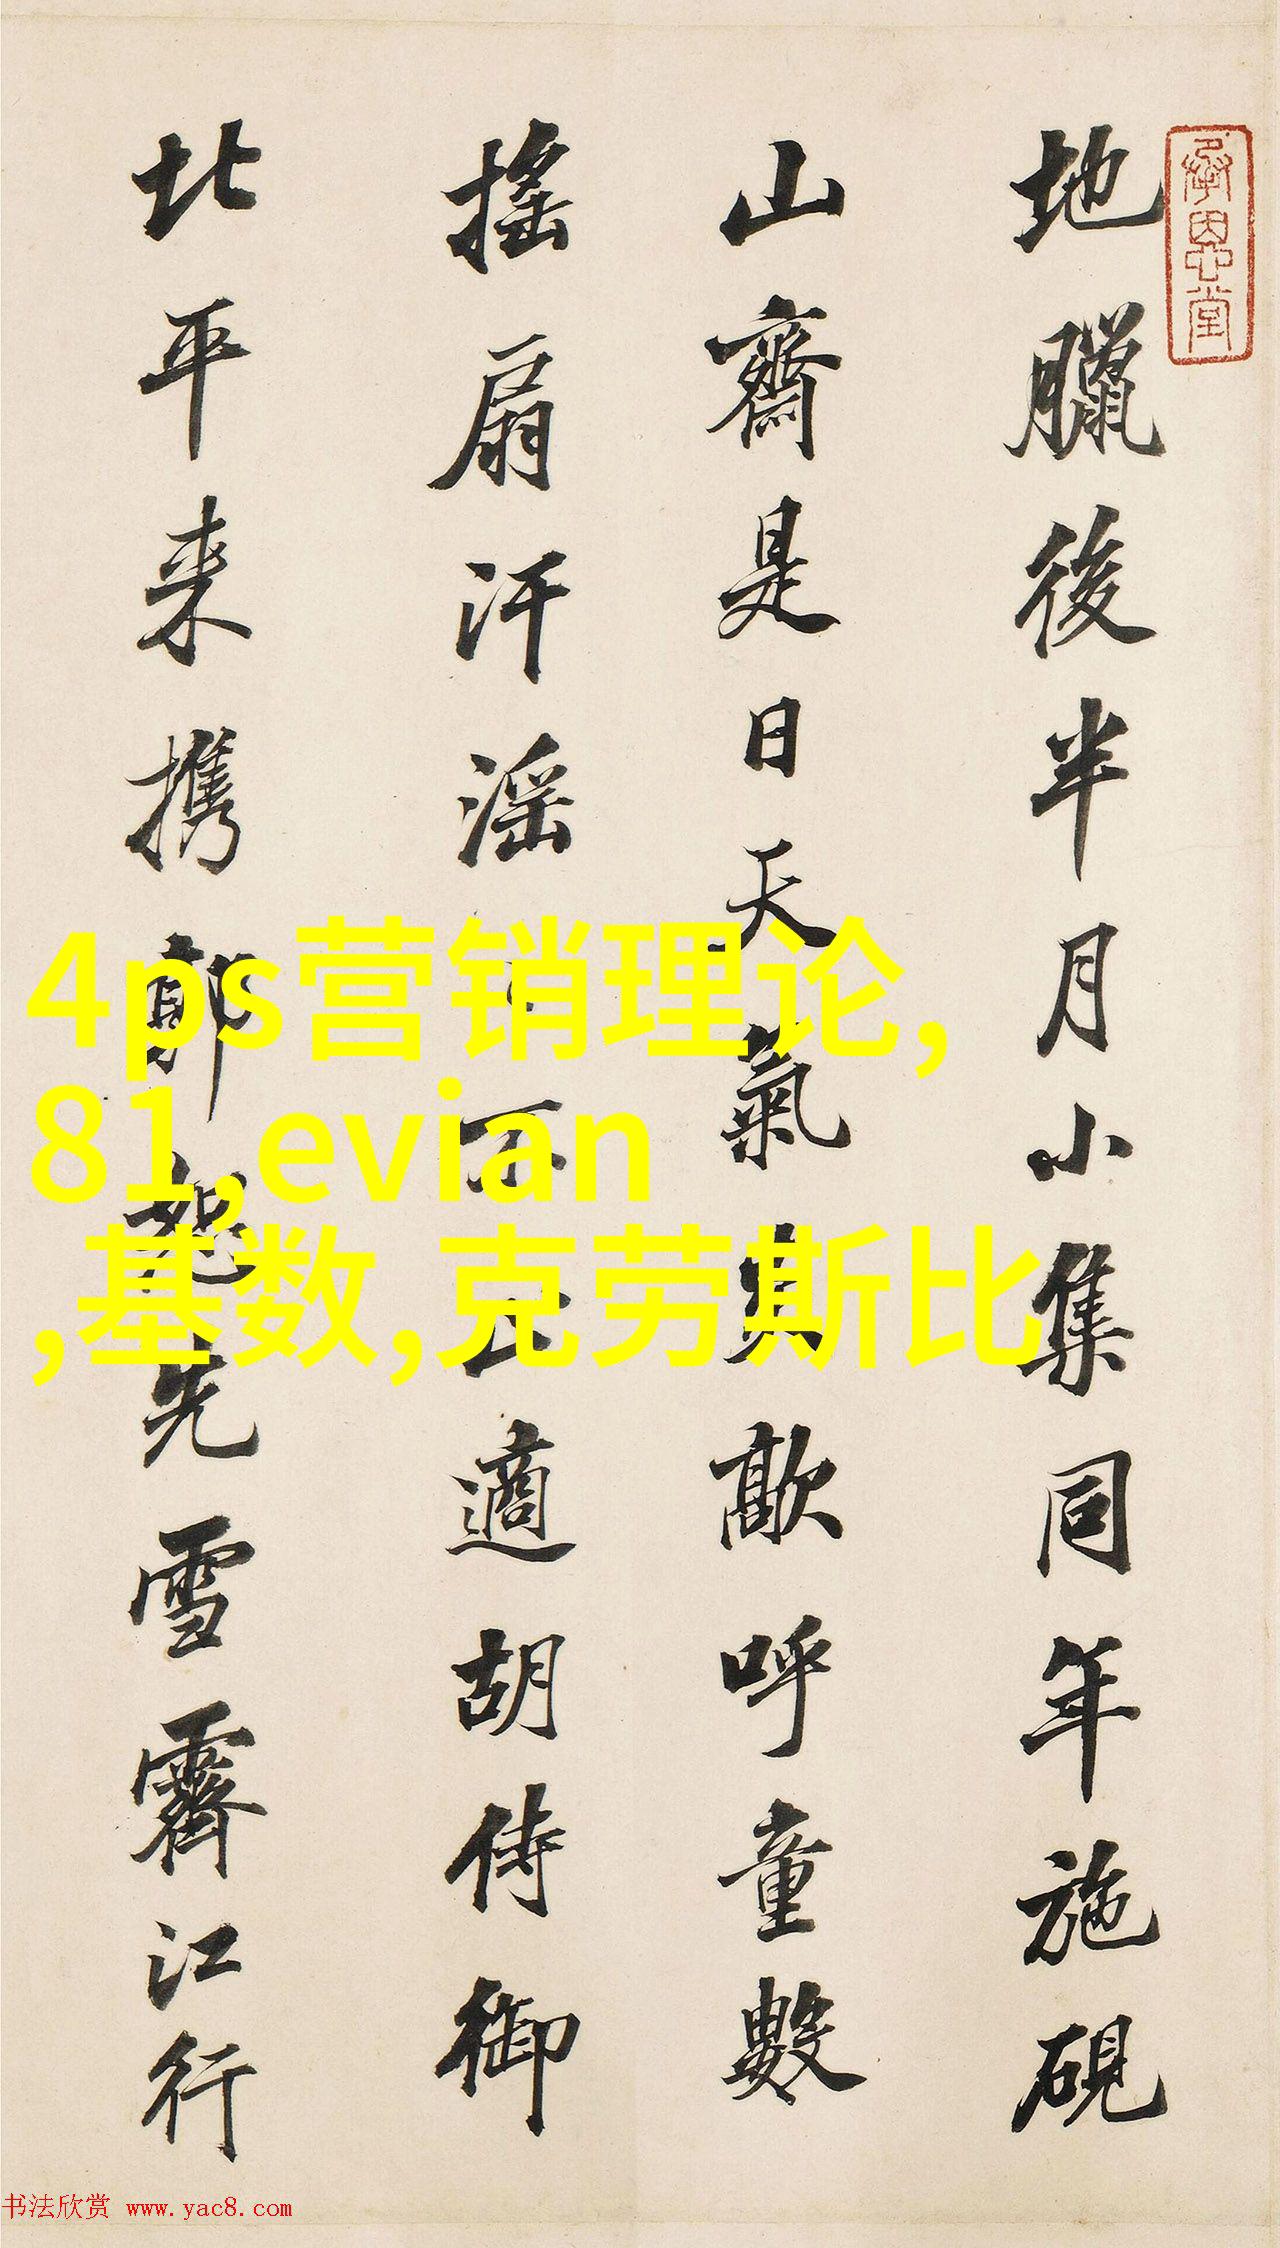 承恩堂
地臘後半月小集同年施硯
山齋是日天氣歊呼童數
搖扇汗滛不止適胡侍御
北平来攜郭恕先雪霽江行
4ps营销理论,
81,evian
,基数,克劳斯比
书法欣赏 www.yac8.com